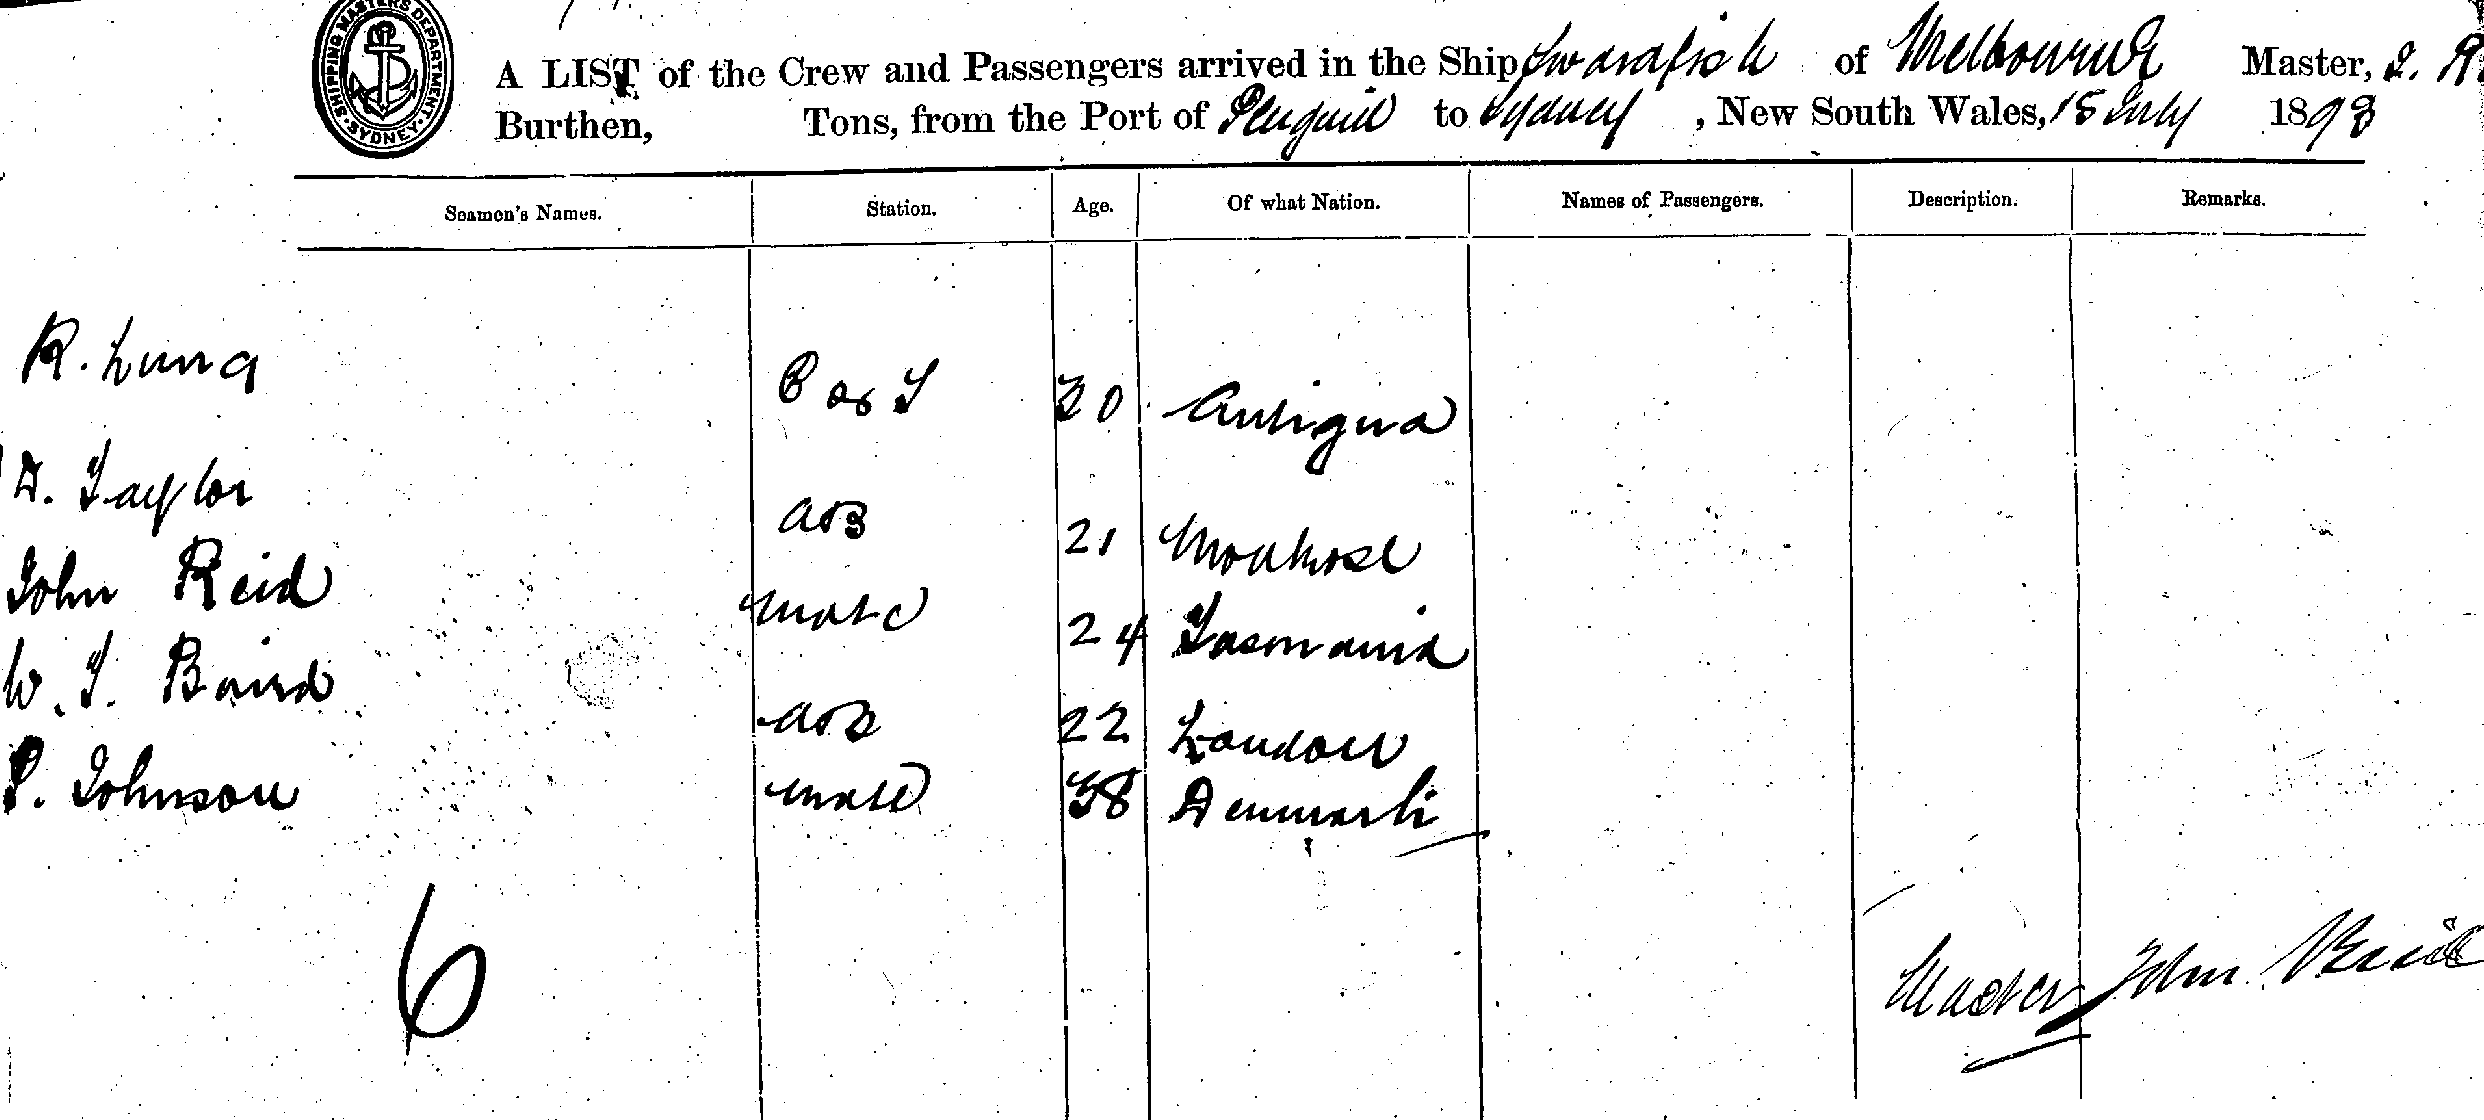 SHIPPING MASTERS DEPARTMENT. SYDNEY.
A LIST of the Crew and Passengers arrived in the Ship Swordfish of Melbourne Master, J. R.
Burthen, Tons, from the Port of Penguin to Sydney, New South Wales, 15 July 1898
Seamen's Names. Station. Age. Of what Nation. Names of Passengers. Description. Remarks.
R. Lung C & S 30 Antigua
D. Taylor AB 21 Montrose
John Reid Mate 24 Tasmania
W. T. Baird AB 22 London
P. Johnson Mate 38 Denmark
6
Master John Reid